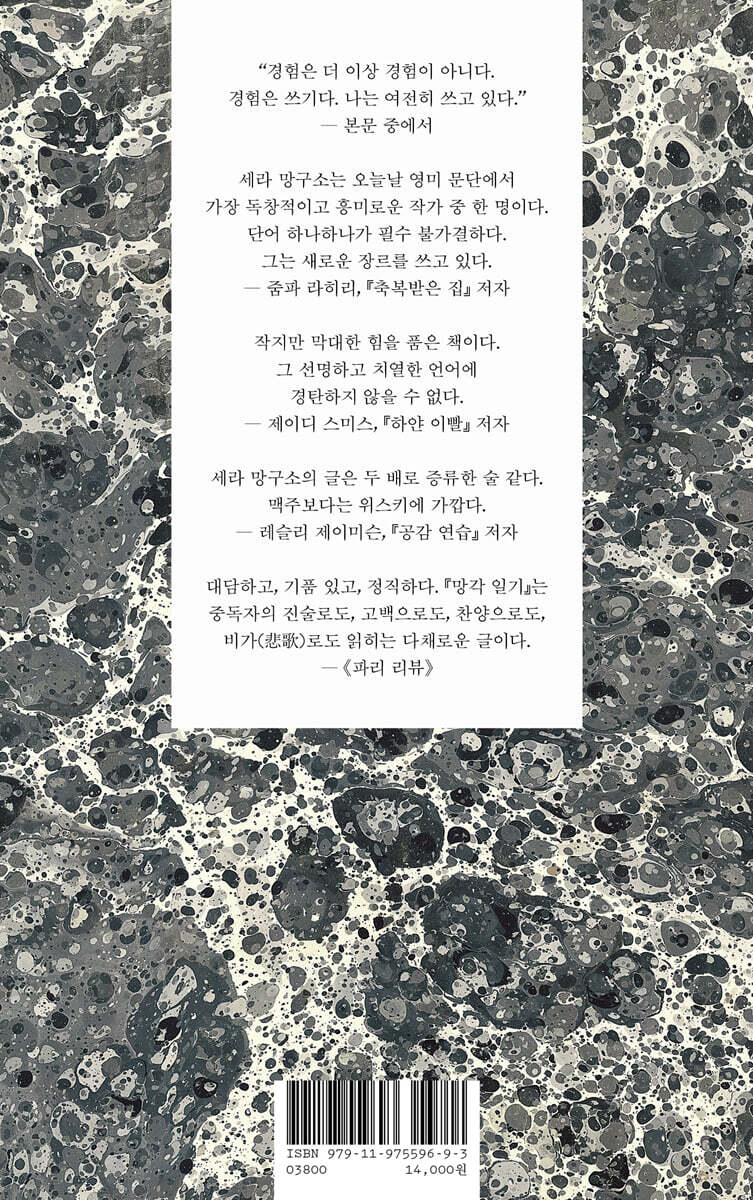 “경험은 더 이상 경험이 아니다.
경험은 쓰기다. 나는 여전히 쓰고 있다.”
— 본문 중에서
세라 망구소는 오늘날 영미 문단에서
가장 독창적이고 흥미로운 작가 중 한 명이다.
단어 하나하나가 필수 불가결하다.
그는 새로운 장르를 쓰고 있다.
— 줌파 라히리, 『축복받은 집』 저자
작지만 막대한 힘을 품은 책이다.
그 선명하고 치열한 언어에
경탄하지 않을 수 없다.
— 제이디 스미스, 『하얀 이빨』 저자
세라 망구소의 글은 두 배로 증류한 술 같다.
맥주보다는 위스키에 가깝다.
— 레슬리 제이미슨, 『공감 연습』 저자
대담하고, 기품 있고, 정직하다. 『망각 일기』는
중독자의 진술로도, 고백으로도, 찬양으로도,
비가(悲歌)로도 읽히는 다채로운 글이다.
— 《파리 리뷰》
ISBN 979-11-975596-9-3
03800 14,000원